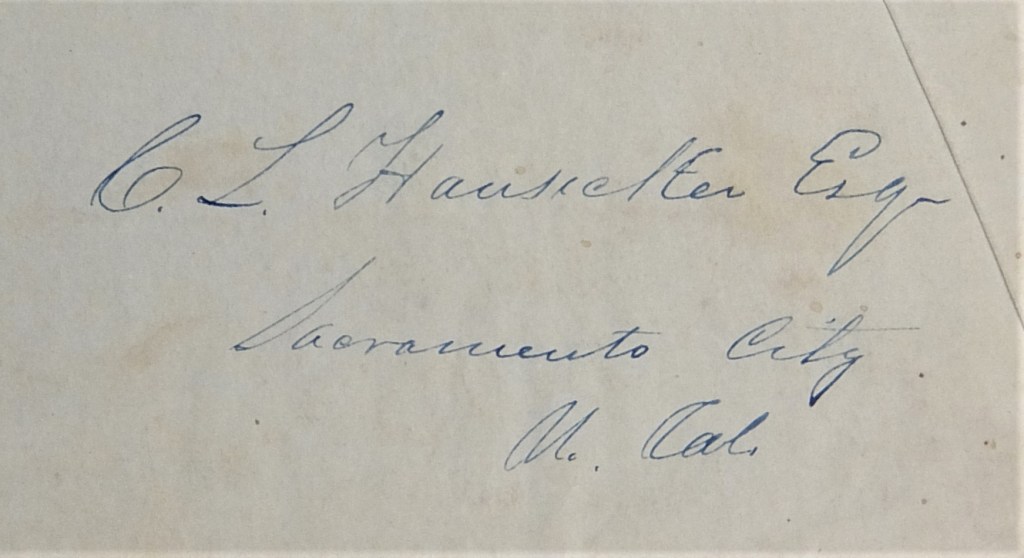 C. L. Hauselter Esq
Sacramento City
U. Cal.